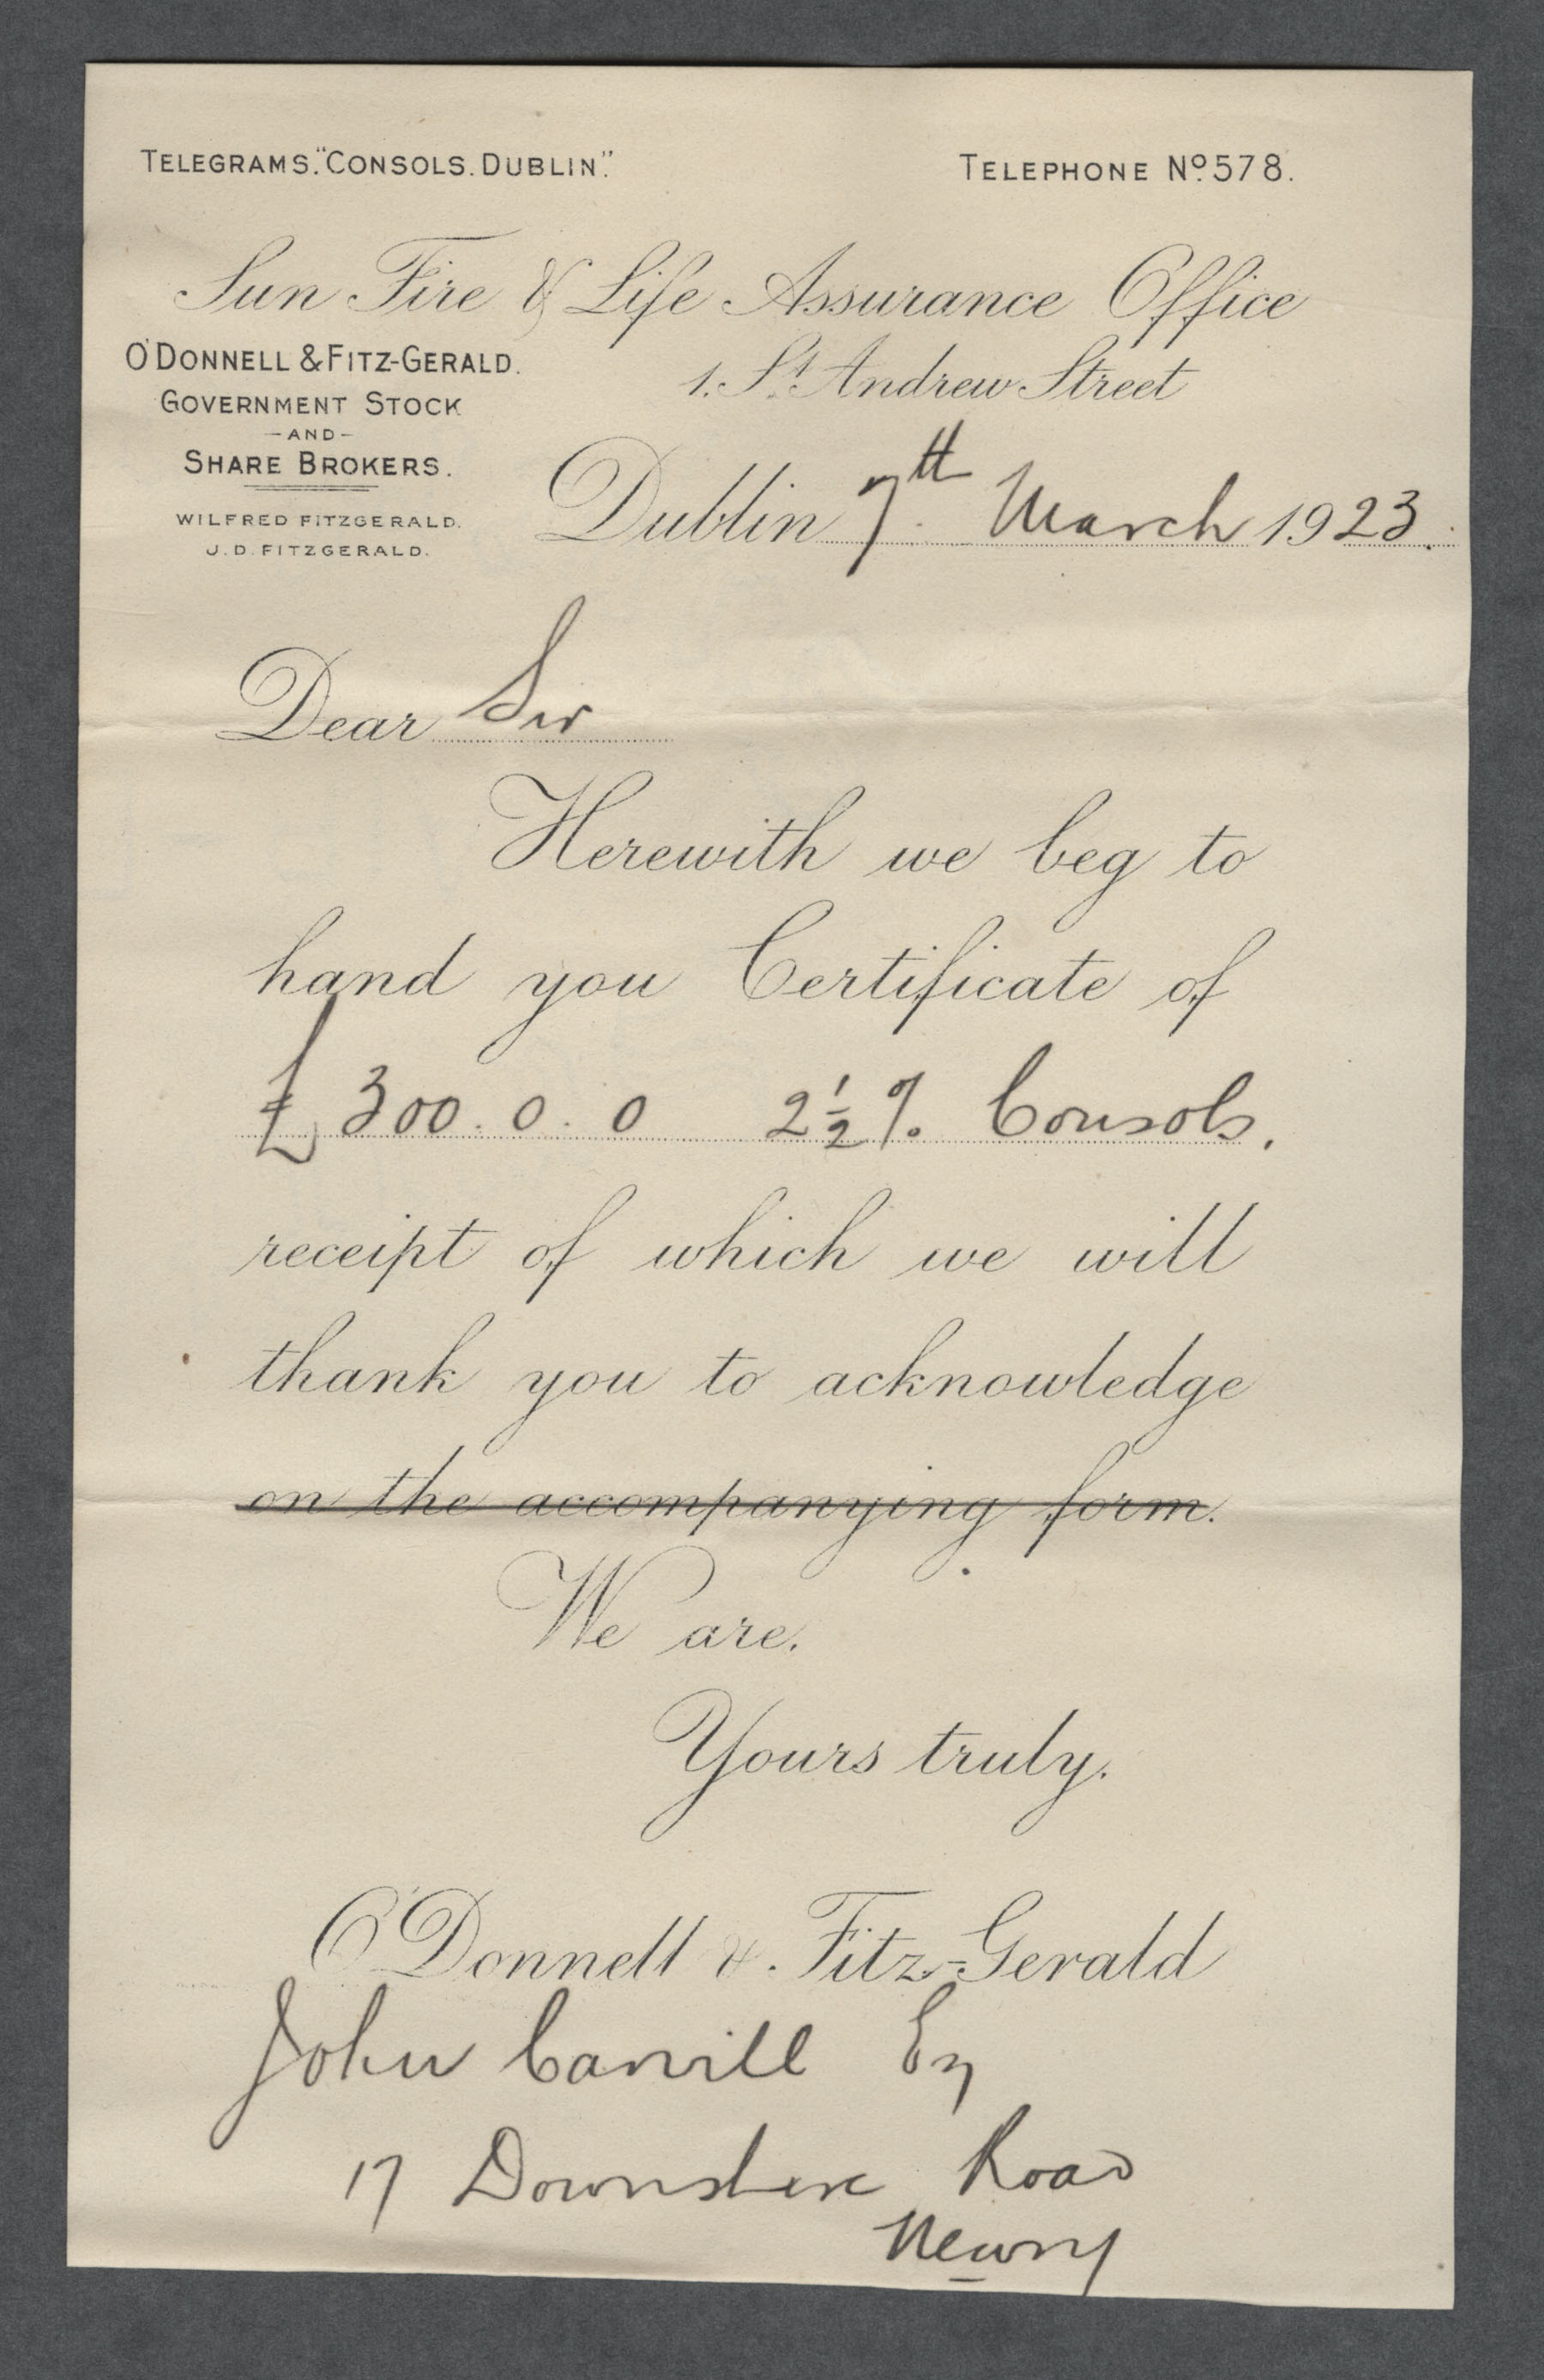 TELEGRAMS. "CONSOLS. DUBLIN".
TELEPHONE Nº 578.
Sun Fire & Life Assurance Office
O'DONNELL & FITZ-GERALD.
GOVERNMENT STOCK
- AND -
SHARE BROKERS.
WILFRED FITZGERALD.
J. D. FITZGERALD.
1. St. Andrew Street
Dublin 7th March 1923.
Dear Sir
Herewith we beg to
hand you Certificate of
£300. 0. 0 2½% Consols.
receipt of which we will
thank you to acknowledge
on the accompanying form.
We are.
Yours truly.
O'Donnell & Fitz-Gerald
John Carvill Esq
17 Downshire Road
Newry